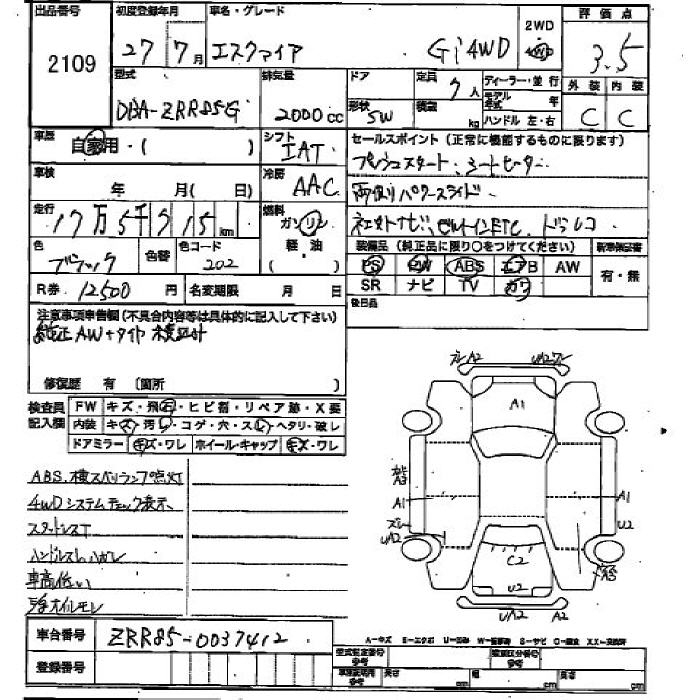 出品番号 初度登録年月 車名・グレード 2WD 評価点
2109 27年7月 エスクァイア Gi4WD 4WD 3.5
型式 排気量 ドア 定員 7人 ディーラー・並行 外装 内装
DBA-ZRR85G 2000cc 形状 5W 積載 kg モデル年式 年 ハンドル 左・右 C C
車歴 自家用・( ) シフト IAT セールスポイント(正常に機能するものに限ります)
プッシュスタート、シートヒーター
車検 年 月(日) 冷房 AAC 両側パワースライド
走行 17万5千915km 燃料 ガソリン 社外ナビ、ビルトインETC、ドラレコ
色 ブラック 色替 色コード 202 軽・油 ( ) 装備品(純正品に限り○をつけてください) 新車保証書
PS PW ABS エアB AW 有・無
R券 12500円 名変期限 月 日 SR ナビ TV カワ
後日品
注意事項申告欄(不具合内容等は具体的に記入して下さい)
純正AW+タイヤ 積込み
修復歴 有 〔箇所 〕
検査員記入欄 FW キズ・飛石・ヒビ割・リペア跡・X要
内装 キズ・汚レ・コゲ・穴・スレ・ヘタリ・破レ
ドアミラー キズ・ワレ ホイール・キャップ キズ・ワレ
ABS.横スベリランプ点灯
4WDシステムチェック表示、
スタートレスT
ハンドルスレ、ハガレ
車高低い
オイルモレ
A2 UA2ワレ
A1
A1 A1
ズレ U2
UA2
C2
U2
UA2 A2
車台番号 ZRR85-0037412
登録番号
A-キズ E-エクボ U-凹み W-補修跡 S-サビ C-腐食 XX-交換済
型式指定番号 参考 類別区分番号 参考
長さ cm 幅 cm 高さ cm